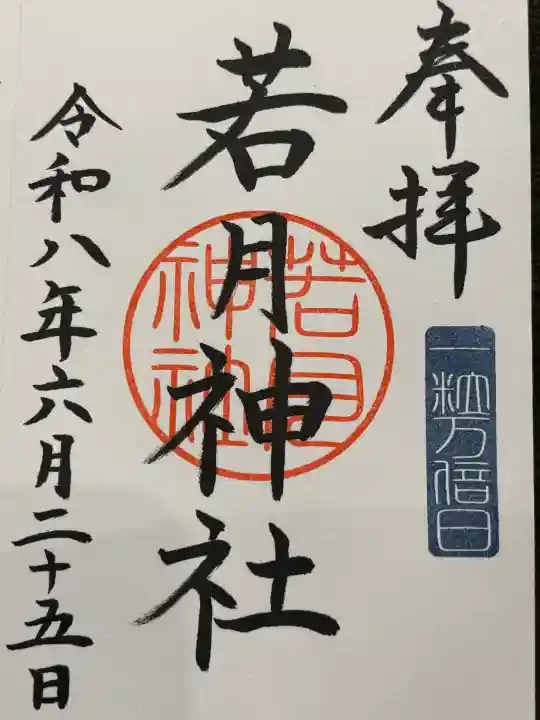 奉拝
一粒万倍日
若月神社
若月神社
令和八年六月二十五日